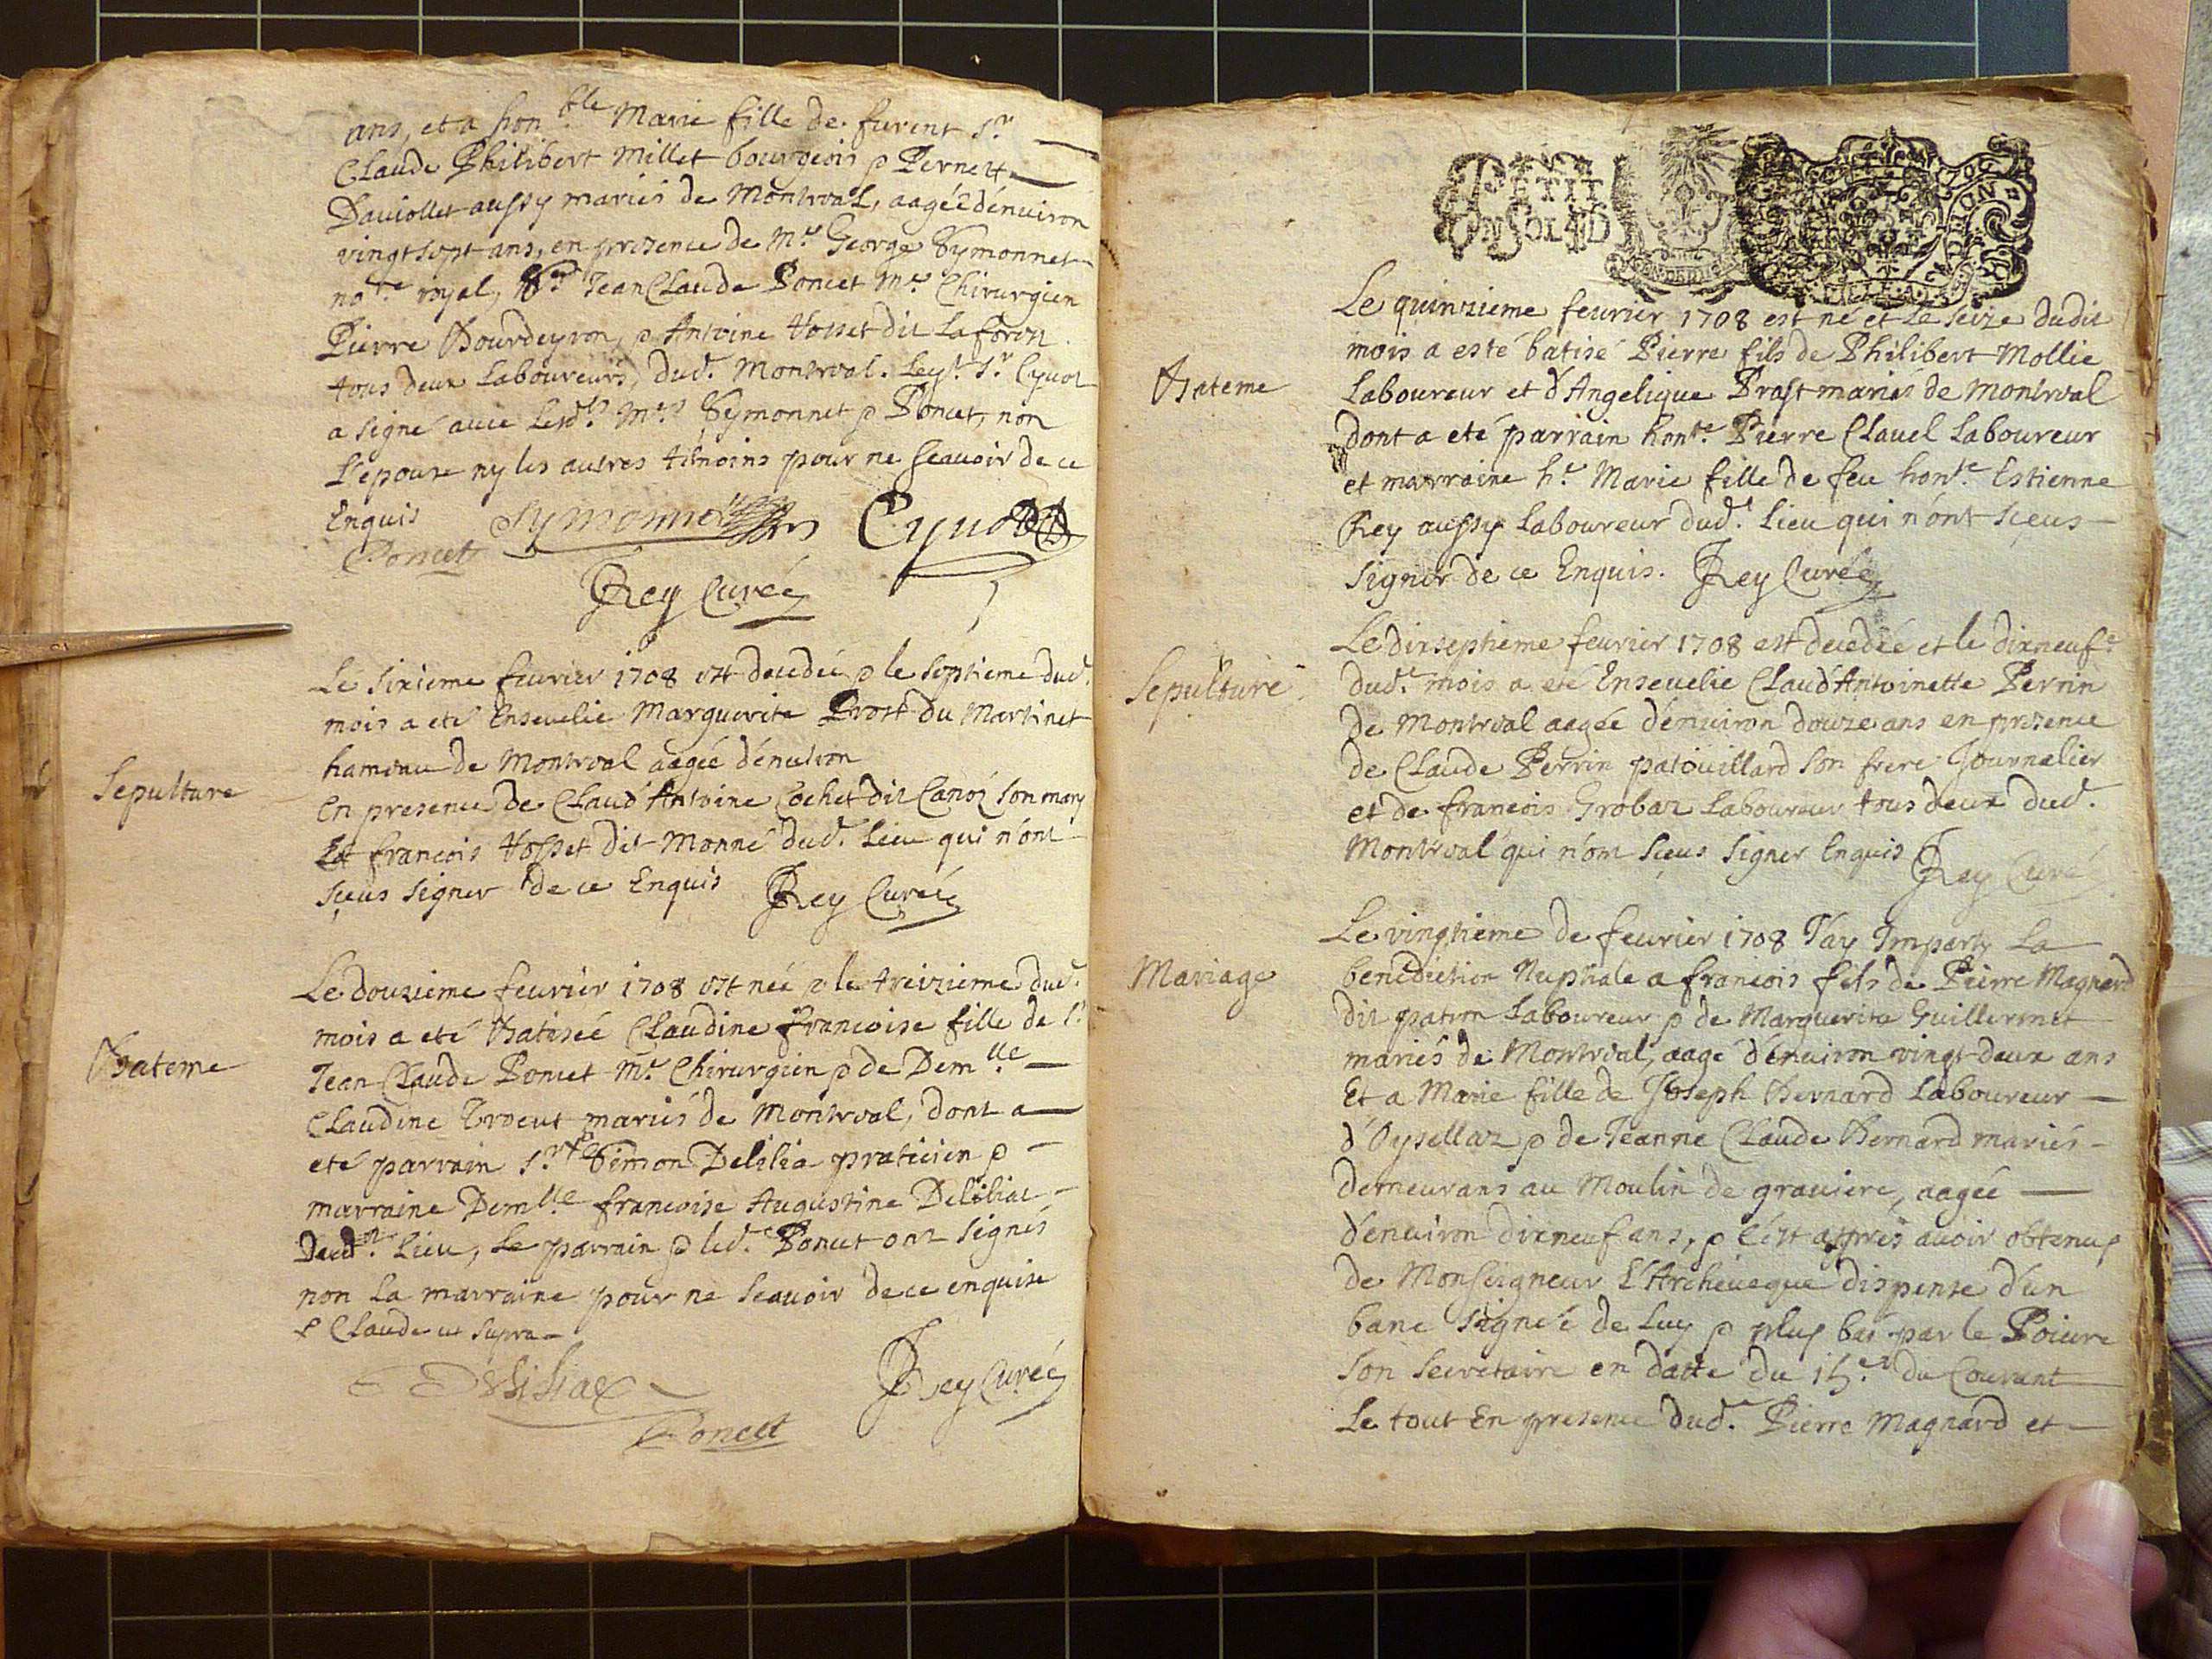 ans, et a hon.ble Marie fille de furent Sr
Claude Philibert Millet bourgeois p Pernett
Daviollet aussy mariés de Montrval, aagée d'environ
vingt sept ans, en presence de Mre George Symonnet
no.re royal, Jean Claude Poncet Me Chirurgien
Pierre Bourdeyron, p Antoine Vosset dit Laforest
tous deux Laboureurs, dud. Montrval. Led. Sr Cynot
a signé avec Lesd.s Mes Symonnet p Poncet, non
L'epouse ny les autres témoins pour ne sçavoir de ce
Enquis Symonnet Cynot
Poncet
Rey Curé
Le sixieme fevrier 1708 est decedée p le septieme dud.
mois a eté Ensevelie Marguerite Prost du Martinet
hameau de Montrval aagée d'environ
Sepulture
En presence de Claud' Antoine Cochet dit Canoz son mary
Et francois Vosset dit Monné dud. Lieu qui n'ont
sçeus signer de ce Enquis Rey Curé
Le douzieme fevrier 1708 est née p le treizieme dud.
mois a eté Batisée Claudine francoise fille de Sr
Bateme
Jean Claude Poncet Me Chirurgien p de Demlle
Claudine mariés de Montrval, dont a
eté parrain Sr Simon Delilia praticien p
marraine Demlle francoise Augustine Deliliat
Dud. Lieu, Le parrain p led. Poncet ont signés
non La marraine pour ne sçavoir de ce enquise
Claude ut supra
Deliliat Rey Curé
Poncet
PETIT
Le quinzieme fevrier 1708 est né et Le seize dudit
mois a esté batisé Pierre fils de Philibert Mollie
Bateme
Laboureur et d'Angelique Prost mariés de Montrval
dont a eté parrain hon.te Pierre Clavel Laboureur
et marraine h.e Marie fille de feu hon.te Estienne
Rey aussy Laboureur dud. Lieu qui n'ont sçeus
signer de ce Enquis. Rey Curé
Le dixseptieme fevrier 1708 est decedée et le dixneuf.e
Sepulture
dud. mois a eté Ensevelie Claud'Antoinette Perrin
de Montrval aagée d'environ douze ans en presence
de Claude Perrin patouillard son frere Journalier
et de francois Grobaz Laboureur tous deux dud.
Montrval qui n'ont sçeus signer Enquis Rey Curé
Le vingtieme de fevrier 1708 J'ay Imparty La
Mariage
benediction Nuptiale a francois fils de Pierre Magnard
dit patron Laboureur p de Marguerite Guillermet
mariés de Montrval, aagé d'environ vingt deux ans
Et a Marie fille de Joseph Bernard Laboureur
d'Oysellaz p de Jeanne Claude Bernard mariés
demeurans au Moulin de graviere, aagée
d'environ dixneuf ans, p c'est apprés avoir obtenus
de Monseigneur L'Archeveque dispense d'un
banc signée de Luy p plus bas par le Poivre
son secretaire en datte du 15.e du Courant
Le tout En presence dud. Pierre Magnard et